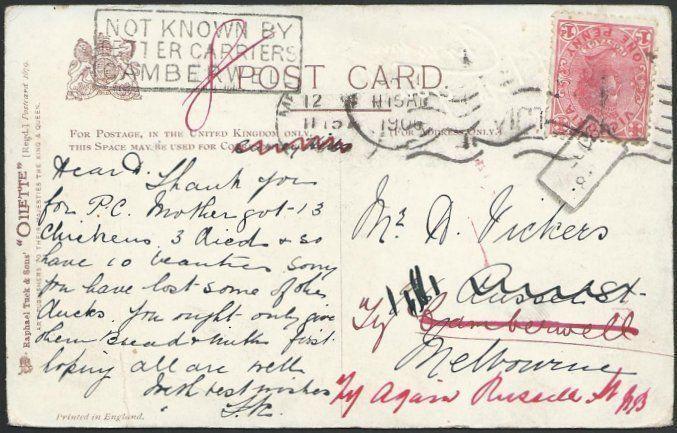 NOT KNOWN BY
LETTER CARRIERS
CAMBERWELL
8
POST CARD.
12
11 15 AM
1906
11 15
VICT
ONE PENNY
VICTORIA
FOR POSTAGE, IN THE UNITED KINGDOM ONLY,
THIS SPACE MAY BE USED FOR
(FOR ADDRESS ONLY.)
Raphael Tuck & Sons' "OILETTE" [Regd.] Postcard 1079.
ART PUBLISHERS TO THEIR MAJESTIES THE KING & QUEEN.
Dear D. Thank you
for P.C. Mother got 13
Chickens 3 died & so
have 10 beauties sorry
you have lost some of the
ducks. You ought only give
them Bread & milk first
hoping all are well
With best wishes
Mr D. Vickers
Russel St
Try Camberwell
Melbourne
Try Again Russell St
Printed in England.